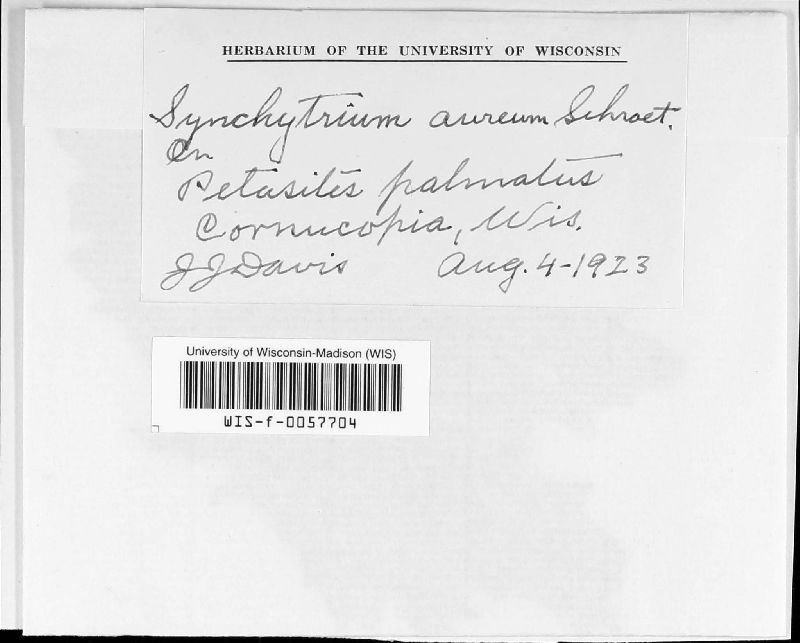 HERBARIUM OF THE UNIVERSITY OF WISCONSIN
Synchytrium aureum Schroet.
On
Petasites palmatus
Cornucopia, Wis.
J J Davis Aug. 4-1923
University of Wisconsin-Madison (WIS)
WIS-f-0057704